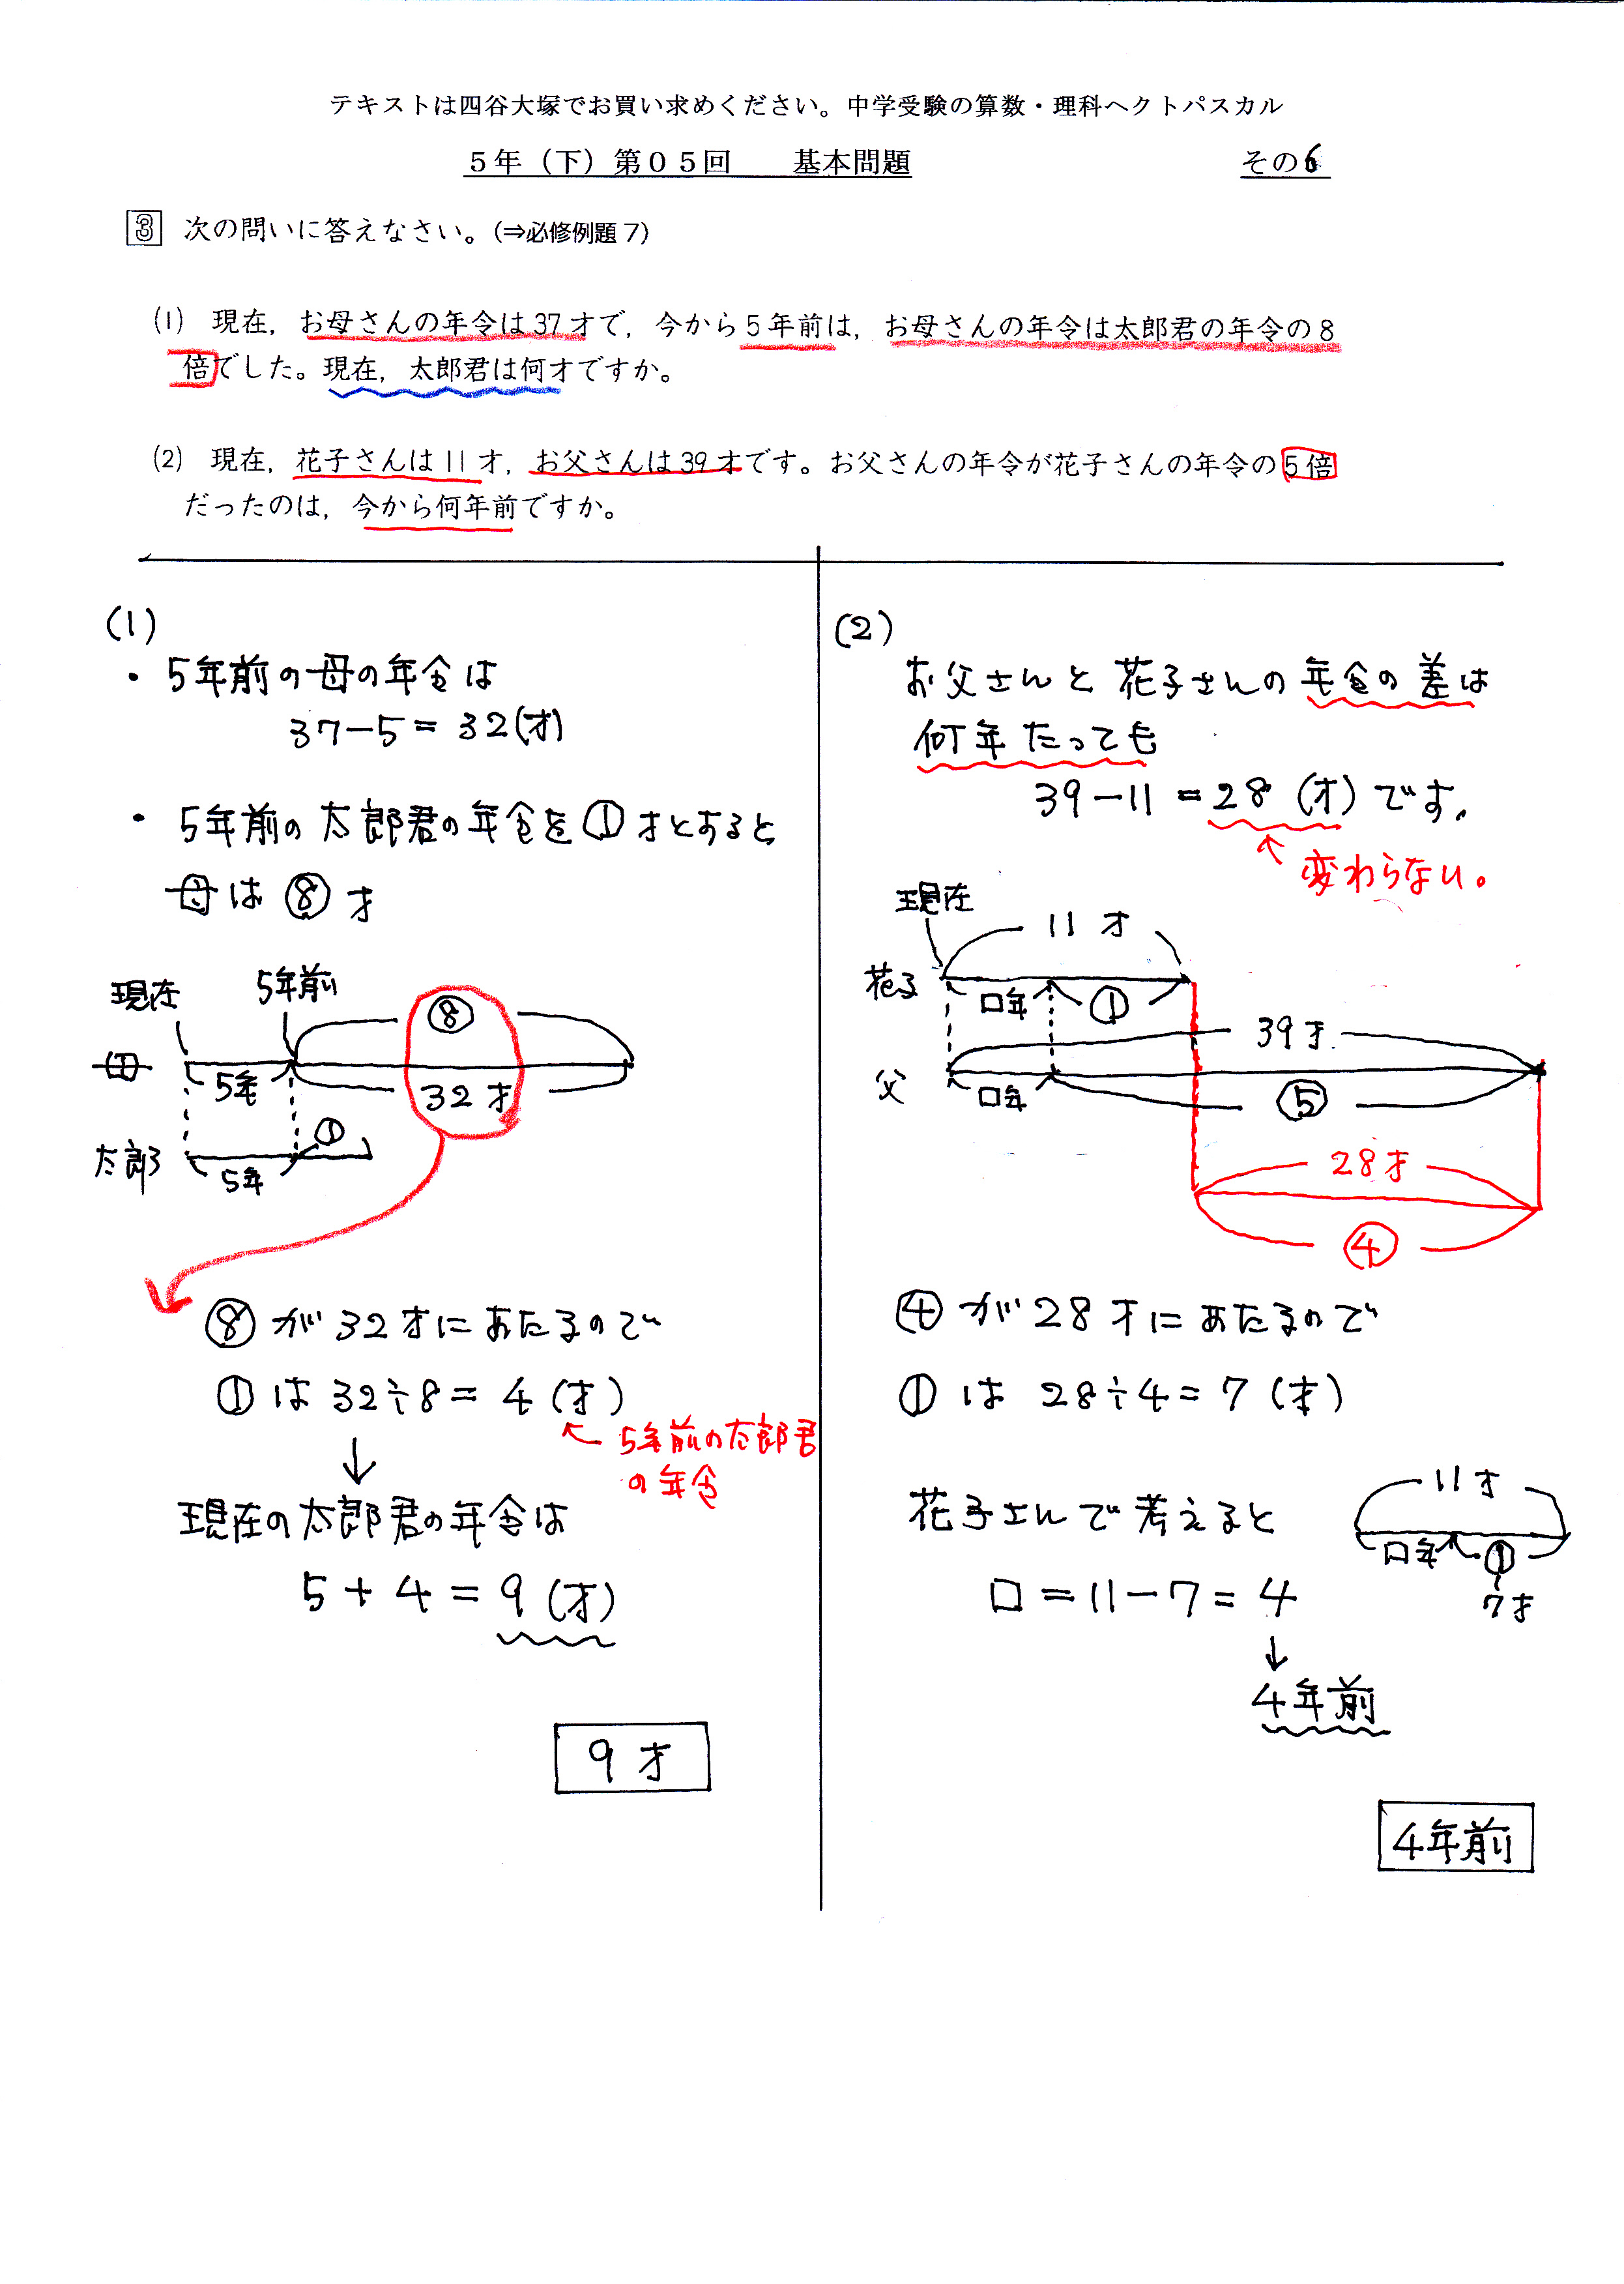 テキストは四谷大塚でお買い求めください。中学受験の算数・理科ヘクトパスカル
5年（下）第05回　基本問題　その6
3 次の問いに答えなさい。(⇒必修例題7)
(1) 現在，お母さんの年令は37才で，今から5年前は，お母さんの年令は太郎君の年令の8
倍でした。現在，太郎君は何才ですか。
(2) 現在，花子さんは11才，お父さんは39才です。お父さんの年令が花子さんの年令の5倍
だったのは，今から何年前ですか。
(1)
・5年前の母の年令は
37－5＝32(才)
・5年前の太郎君の年令を①才とすると
母は⑧才
現在 5年前 ⑧
母 5年 32才
太郎 5年 ①
⑧が32才にあたるので
①は32÷8＝4(才)
←5年前の太郎君
の年令
↓
現在の太郎君の年令は
5＋4＝9(才)
9才
(2)
お父さんと花子さんの年令の差は
何年たっても
39－11＝28(才)です。
↑変わらない。
現在 11才
花子 □年 ①
39才
父 □年 ⑤
28才
④
④が28才にあたるので
①は28÷4＝7(才)
花子さんで考えると
11才
□年 ①
7才
□＝11－7＝4
↓
4年前
4年前